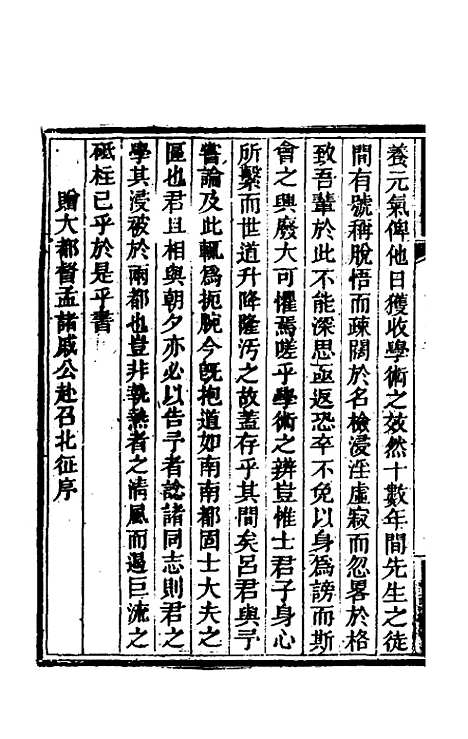 養元氣俾他日獲收學術之效然十數年間先生之徒
間有號稱脫悟而疎闊於名檢浸淫虛寂而忽畧於格
致吾輩於此不能深思亟返恐卒不免以身為謗而斯
會之興廢大可懼焉嗟乎學術之辨豈惟士君子身心
所繫而世道升降隆汚之故蓋存乎其間矣呂君與予
嘗論及此輒為扼腕今旣抱道如南南都固士大夫之
區也君且相與朝夕亦必以告予者諗諸同志則君之
學其浸被於兩都也豈非執熱者之清風而遏巨流之
砥柱已乎於是乎書
贈大都督孟諸戚公赴召北征序